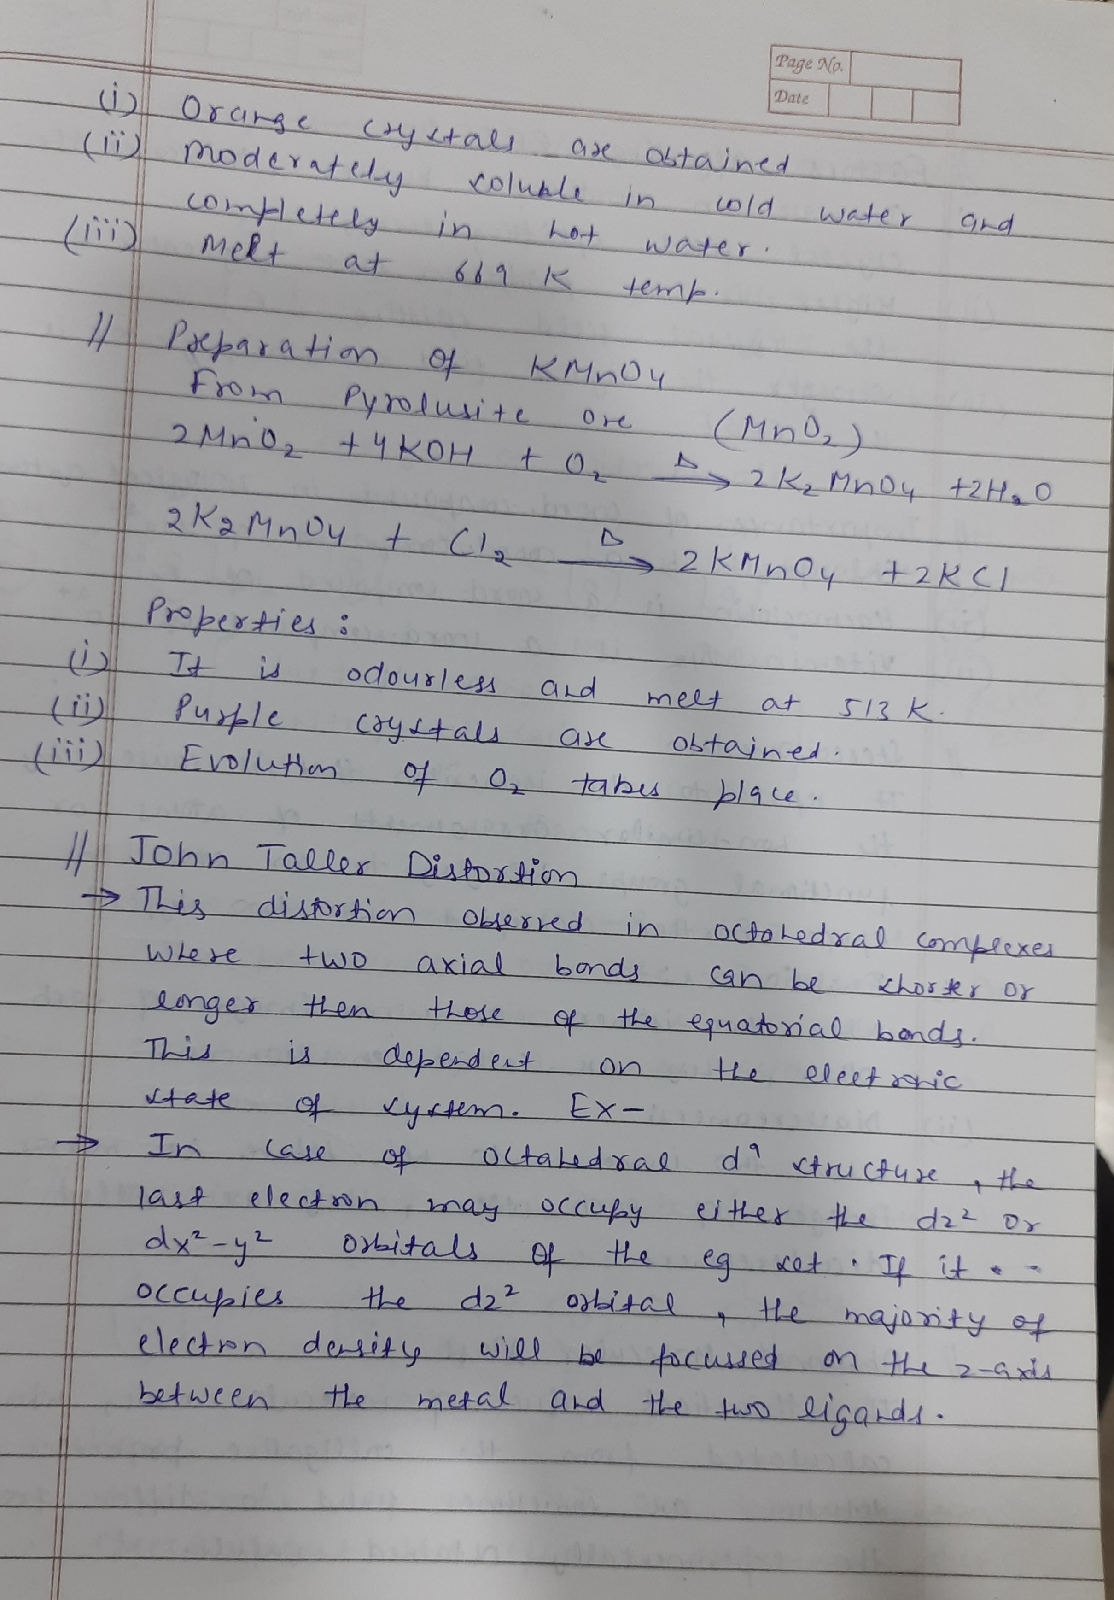 Page No.
Date
(i) Orange crystals are obtained
(ii) Moderately soluble in cold water and
completely in hot water.
(iii) Melt at 669 K temp.
// Preparation of KMnO4
From Pyrolusite ore (MnO2)
2MnO2 + 4KOH + O2 Δ→ 2K2MnO4 +2H2O
2K2MnO4 + Cl2 Δ→ 2KMnO4 +2KCl
Properties :
(i) It is odourless and melt at 513 K.
(ii) Purple crystals are obtained.
(iii) Evolution of O2 takes place.
// John Taller Distortion
→ This distortion observed in octohedral complexes
where two axial bonds can be shorter or
longer then those of the equatorial bonds.
This is dependent on the electronic
state of system. Ex-
→ In case of octahedral d⁹ structure, the
last electron may occupy either the dz² or
dx²-y² orbitals of the eg set. If it
occupies the dz² orbital, the majority of
electron density will be focussed on the z-axis
between the metal and the two ligands.